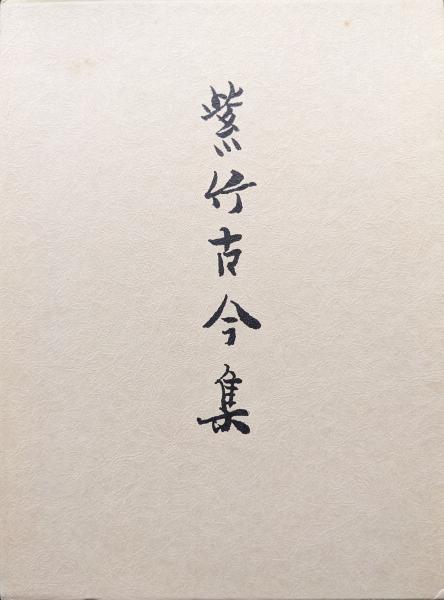 紫竹古今集